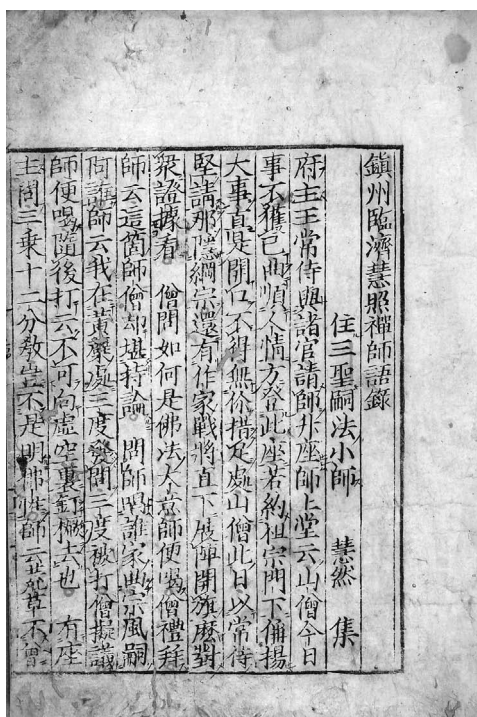 鎮州臨濟慧照禪師語錄
住三聖嗣法小師 慧然 集
府主王常侍與諸官請師升座師上堂云山僧今日
事不獲已曲順人情方登此座若約祖宗門下稱揚
大事直是開口不得無你措足處山僧此日以常侍
堅請那隱綱宗還有作家戰將直下展陣開旗麽對
衆證據看 僧問如何是佛法大意師便喝僧禮拜
師云這箇師僧却堪持論 問師唱誰家曲宗風嗣
阿誰師云我在黃蘗處三度發問三度被打僧擬議
師便喝隨後打云不可向虛空裏釘橛去也 有座
主問三乘十二分敎豈不是明佛性師云荒草不曾